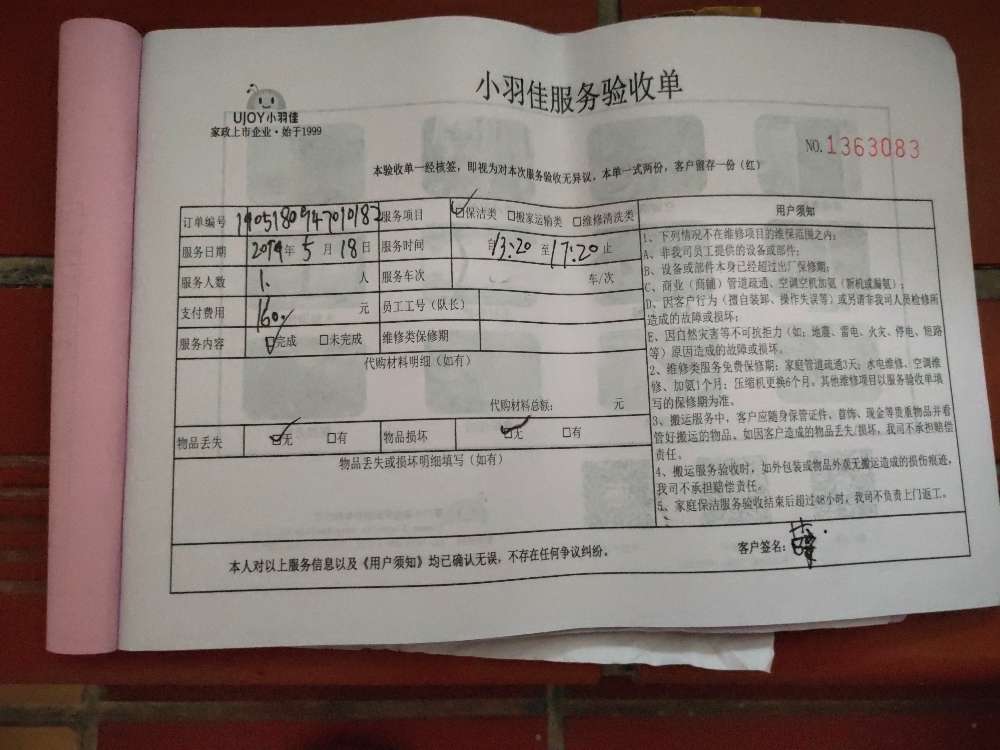 小羽佳服务验收单
UJOY小羽佳
家政上市企业·始于1999
NO.1363083
本验收单一经核签，即视为对本次服务验收无异议。本单一式两份，客户留存一份（红）
订单编号 1905180947010182 服务项目 ☑保洁类 □搬家运输类 □维修清洗类
服务日期 2019年 5月 18日 服务时间 自13:20 至17:20止
服务人数 1. 人 服务车次 车/次
支付费用 160. 元 员工工号（队长）
服务内容 ☑完成 □未完成 维修类保修期
代购材料明细（如有）
代购材料总额： 元
物品丢失 ☑无 □有 物品损坏 ☑无 □有
物品丢失或损坏明细填写（如有）
用户须知
1、下列情况不在维修项目的维保范围之内：
A、非我司员工提供的设备或部件；
B、设备或部件本身已经超过出厂保修期；
C、商业（商铺）管道疏通、空调空机加氨（新机或漏氨）；
D、因客户行为（擅自装卸、操作失误等）或另请非我司人员检修所
造成的故障或损坏；
E、因自然灾害等不可抗拒力（如：地震、雷电、火灾、停电、短路
等）原因造成的故障或损坏。
2、维修类服务免费保修期：家庭管道疏通3天；水电维修、空调维
修、加氨1个月；压缩机更换6个月。其他维修项目以服务验收单填
写的保修期为准。
3、搬运服务中，客户应随身保管证件、首饰、现金等贵重物品并看
管好搬运的物品。如因客户造成的物品丢失/损坏，我司不承担赔偿
责任。
4、搬运服务验收时，如外包装或物品外观无搬运造成的损伤痕迹，
我司不承担赔偿责任。
5、家庭保洁服务验收结束后超过48小时，我司不负责上门返工。
本人对以上服务信息以及《用户须知》均已确认无误，不存在任何争议纠纷。
客户签名：